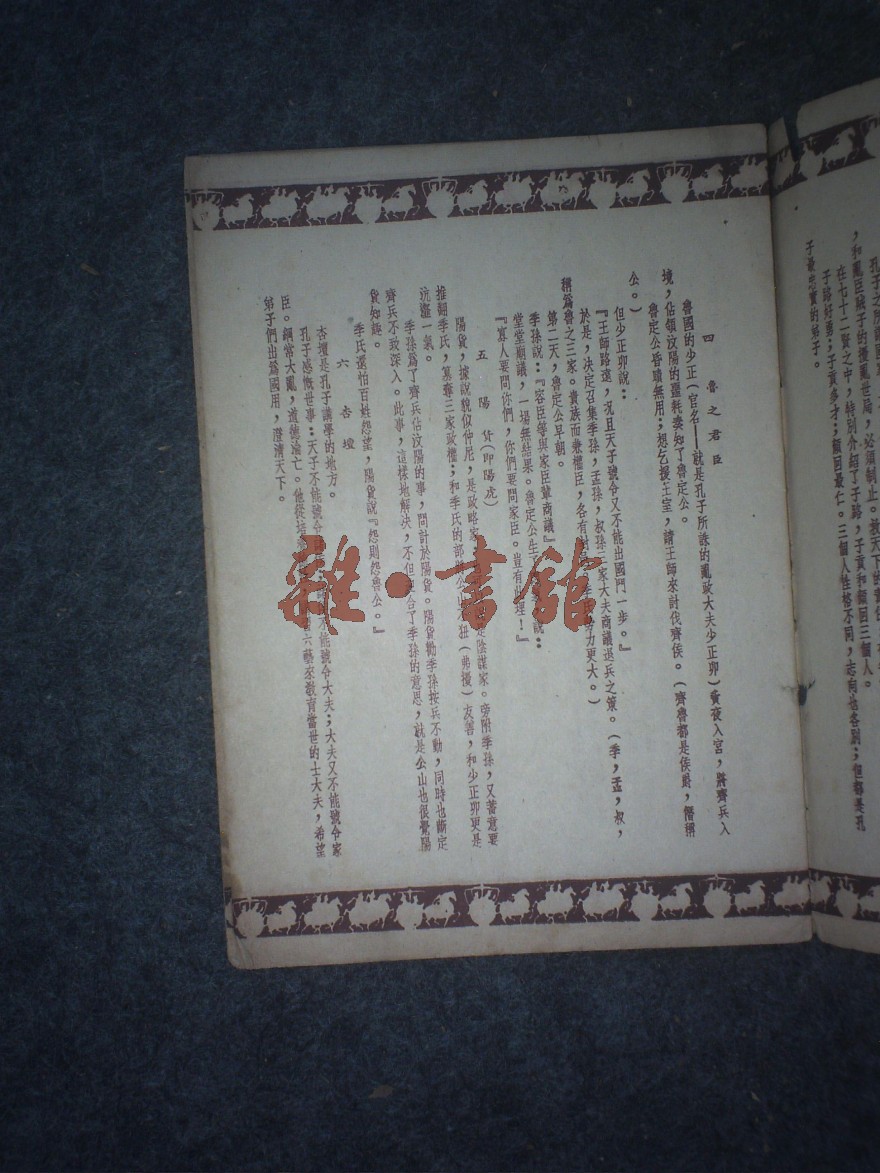 ，和亂臣賊子的擾亂世局，必須制止。救天下的責任
在七十二賢之中，特別介紹了子路，子貢和顏回三個人。
子路好勇；子貢多才；顏回最仁。三個人性格不同，志向也各別；但都是孔
子最忠實的弟子。
四　魯之君臣
魯國的少正（官名——就是孔子所誅的亂政大夫少正卯）黃夜入宮，將齊兵入
境，佔領汶陽的噩耗奏知了魯定公。
魯定公昏聵無用；想乞援王室，請王師來討伐齊侯。（齊魯都是侯爵，僭稱
公。）
但少正卯說：
『王師路遠，況且天子號令又不能出國門一步。』
於是，決定召集季孫，孟孫，叔孫三家大夫商議退兵之策。（季，孟，叔，
稱為魯之三家。貴族而兼權臣，各有 力更大。）
第二天，魯定公早朝。
季孫說：『容臣等與家臣輩商議』
堂堂朝議，一場無結果。魯定公生 說：
『寡人要問你們，你們要問家臣。豈有此理！』
五　陽　貨（即陽虎）
陽貨，據說貌似仲尼，是政略家， 是陰謀家。旁附季孫，又蓄意要
推翻季氏，篡奪三家政權；和季氏的部 公山不狃（弗擾）友善，和少正卯更是
沆瀣一氣。
季孫為了齊兵佔汶陽的事，問計於陽貨。陽貨勸季孫按兵不動，同時也斷定
齊兵不敢深入。此事，這樣地解決，不但 合了季孫的意思，就是公山也很覺陽
貨知趣。
季氏還怕百姓怨望，陽貨說『怨則怨魯公。』
六　杏　壇
杏壇是孔子講學的地方。
孔子感慨世事：天子不能號令 不能號令大夫；大夫又不能號令家
臣。綱常大亂，道德淪亡。他從培 六藝來教育當世的士大夫，希望
弟子們出為國用，澄清天下。
雜·書館